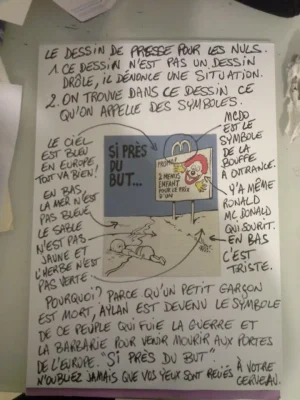 LE DESSIN DE PRESSE POUR LES NULS.
1. CE DESSIN N'EST PAS UN DESSIN
DRÔLE, IL DÉNONCE UNE SITUATION.
2. ON TROUVE DANS CE DESSIN CE
QU'ON APPELLE DES SYMBOLES.
LE CIEL
EST BLEU
EN EUROPE,
TOUT VA BIEN!
EN BAS,
LA MER N'EST
PAS BLEUE
LE SABLE
N'EST PAS
JAUNE ET
L'HERBE N'EST
PAS VERTE
SI PRÈS
DU
BUT...
PROMO!
2 MENUS
ENFANT
POUR LE PRIX
D'UN
MCDO
EST LE
SYMBOLE
DE LA
BOUFFE
À OUTRANCE.
Y'A MÊME
RONALD
MC DONALD
QUI SOURIT.
EN BAS
C'EST
TRISTE.
POURQUOI? PARCE QU'UN PETIT GARÇON
EST MORT, AYLAN EST DEVENU LE SYMBOLE
DE CE PEUPLE QUI FUIE LA GUERRE ET
LA BARBARIE POUR VENIR MOURIR AUX PORTES
DE L'EUROPE. "SI PRÈS DU BUT".
N'OUBLIEZ JAMAIS QUE VOS YEUX SONT RELIÉS À VOTRE
CERVEAU.